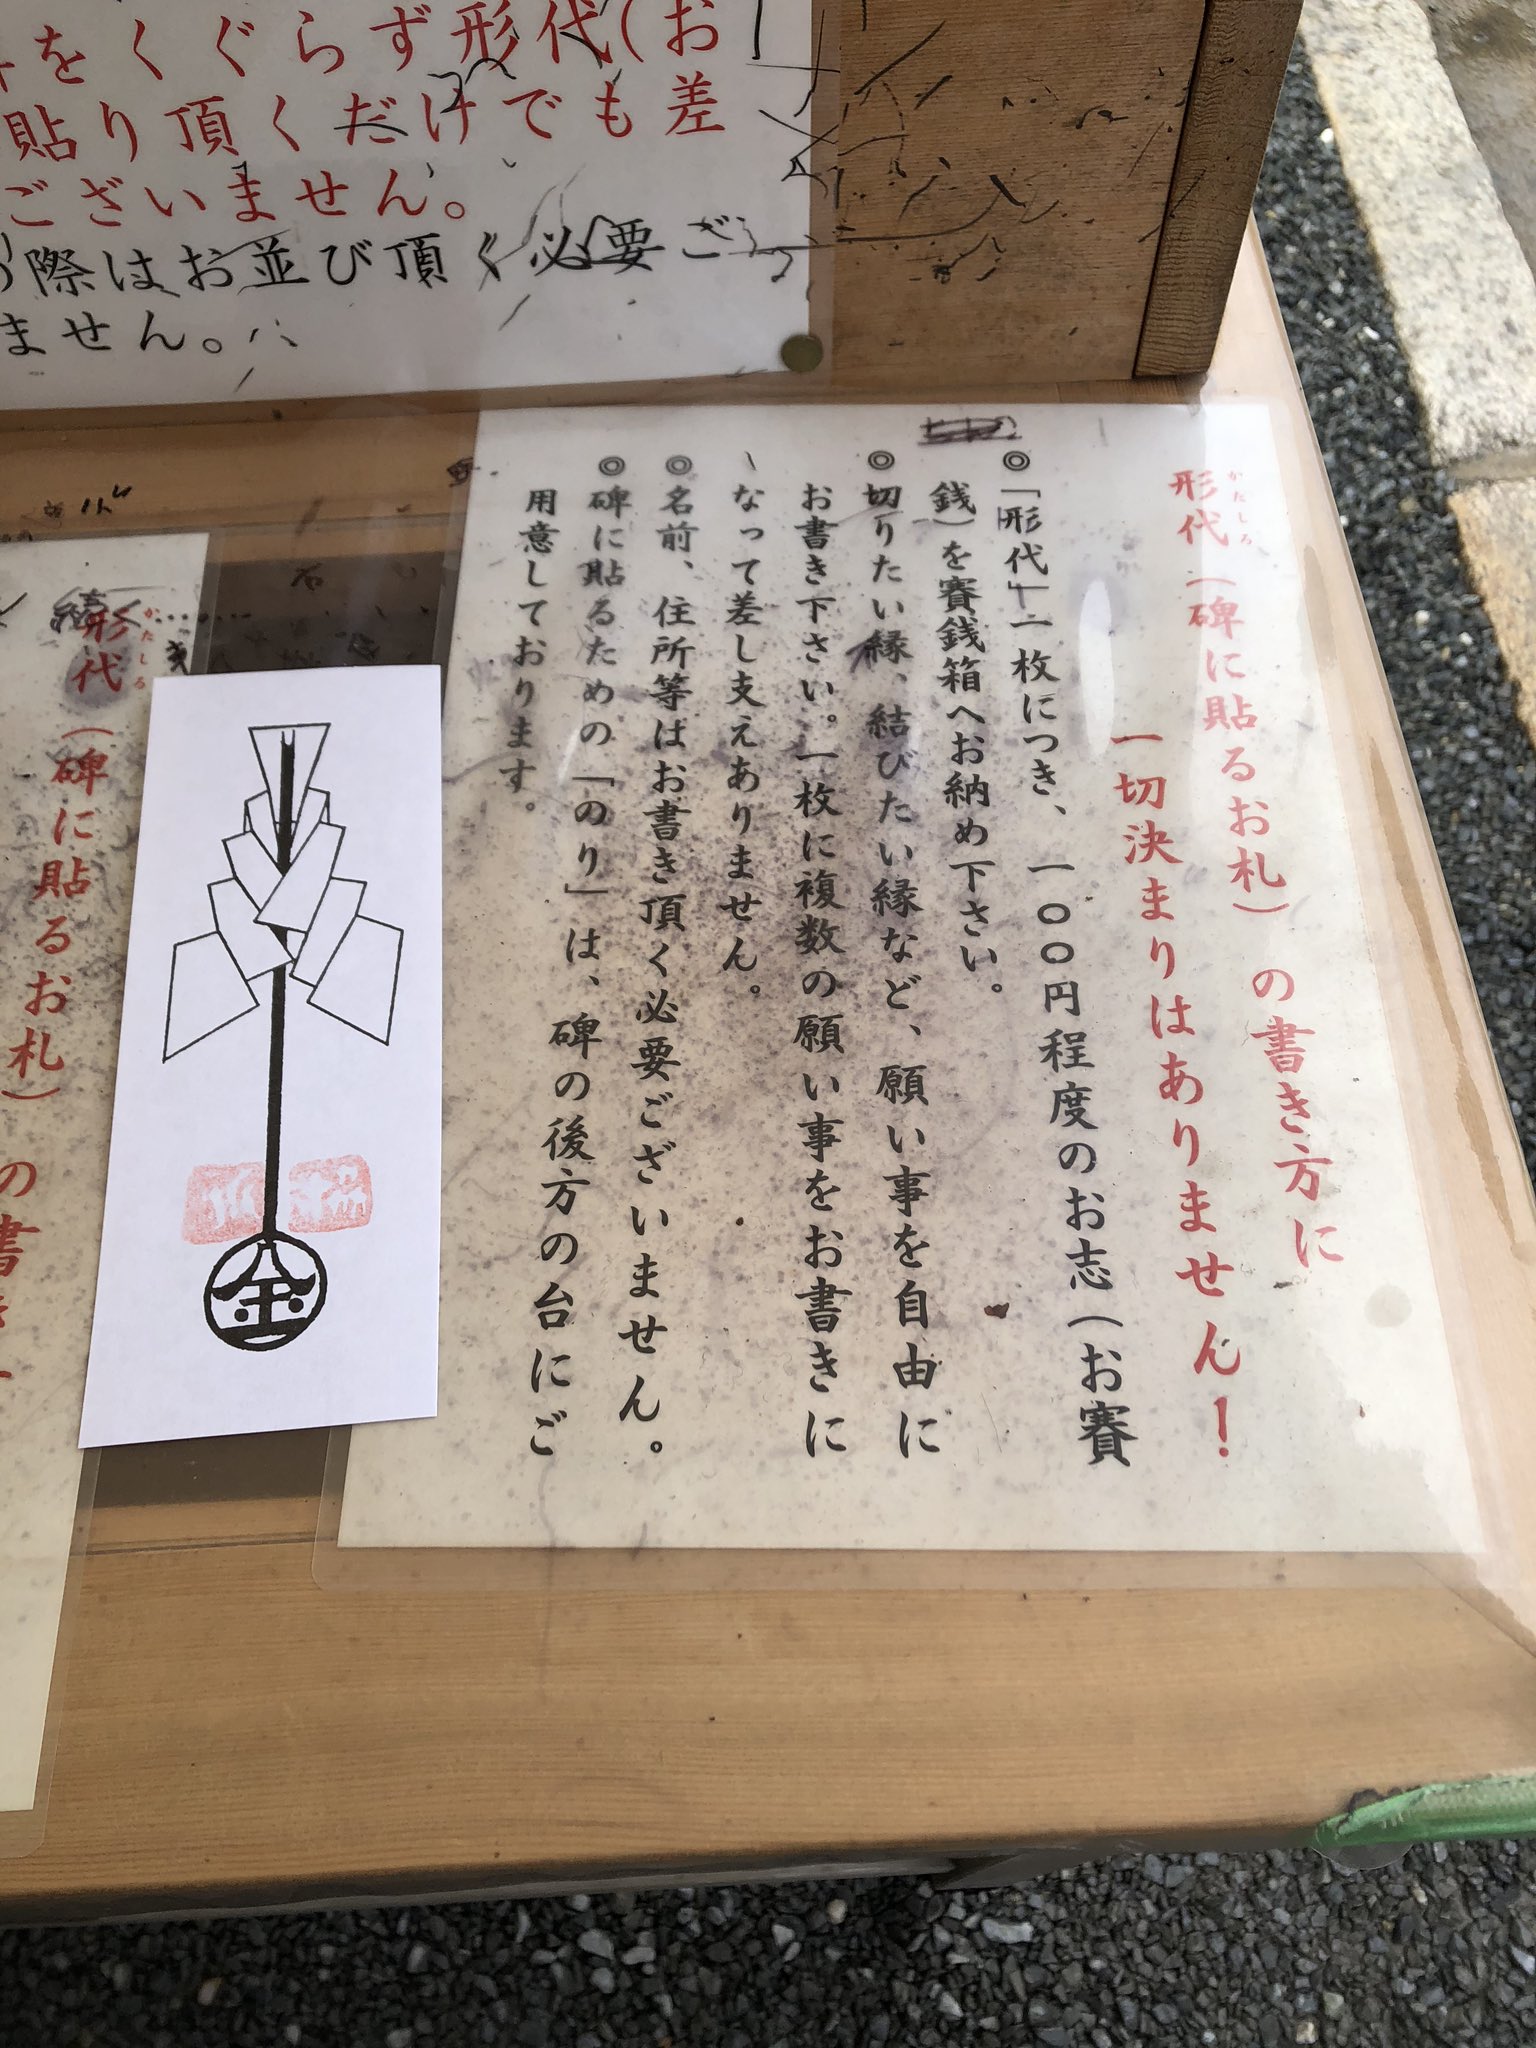 をくぐらず形代(お
貼り頂くだけでも差
ございません。
際はお並び頂く必要ご
ません。
形代(碑に貼るお札)の書き方に
かたしろ
一切決まりはありません!
◎「形代」一枚につき、一〇〇円程度のお志(お賽
銭)を賽銭箱へお納め下さい。
◎切りたい縁、結びたい縁など、願い事を自由に
お書き下さい。一枚に複数の願い事をお書きに
なって差し支えありません。
◎名前、住所等はお書き頂く必要ございません。
◎碑に貼るための「のり」は、碑の後方の台にご
用意しております。
形代(碑に貼るお札)の書き
かたしろ
金